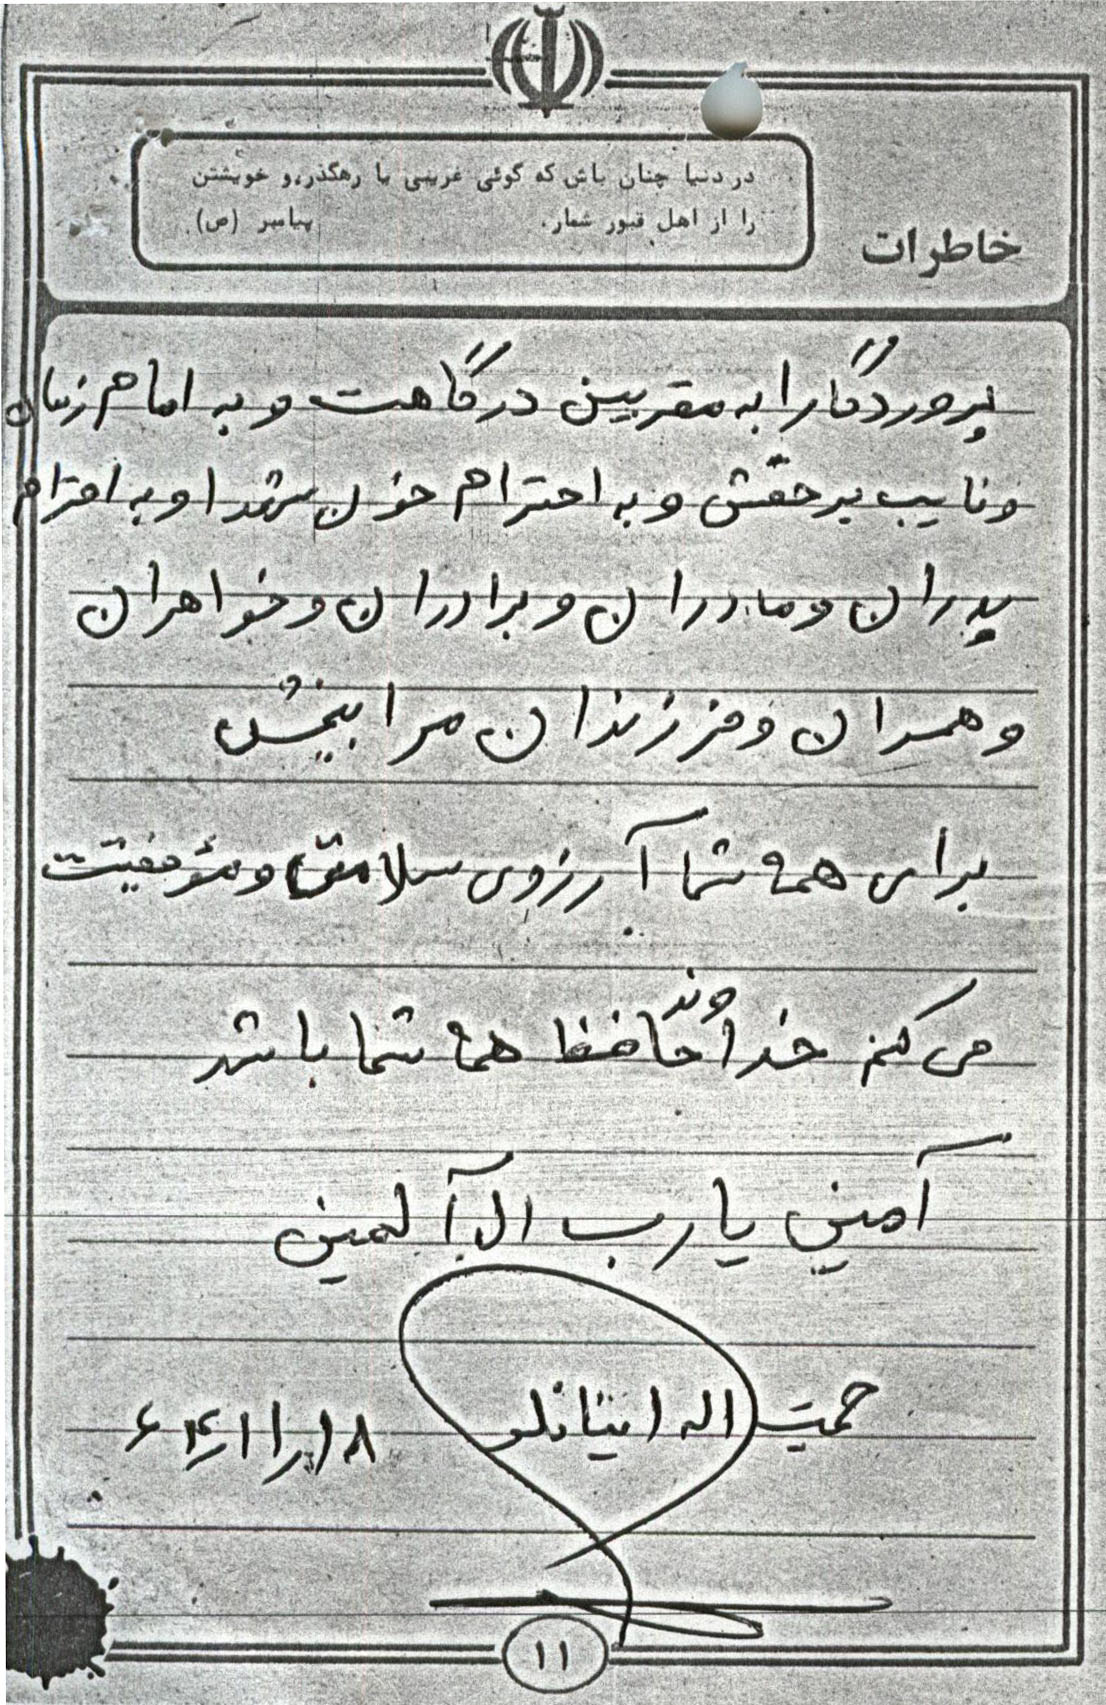 در دنیا چنان باش که گوئی غریبی یا رهگذر، و خویشتن
را از اهل قبور شمار. پیامبر (ص)
خاطرات
پروردگارا به مقربین درگاهت و به امام زمان
و نایب برحقش و به احترام خون شهدا و به احترام
پدران و مادران و برادران و خواهران
و همسران و فرزندان مرا ببخش
برای همه شما آرزوی سلامتی و موفقیت
می کنم خداوند حافظ همه شما باشد
آمین یا رب ال آلمین
حمیت اله اینانلو
۱۱